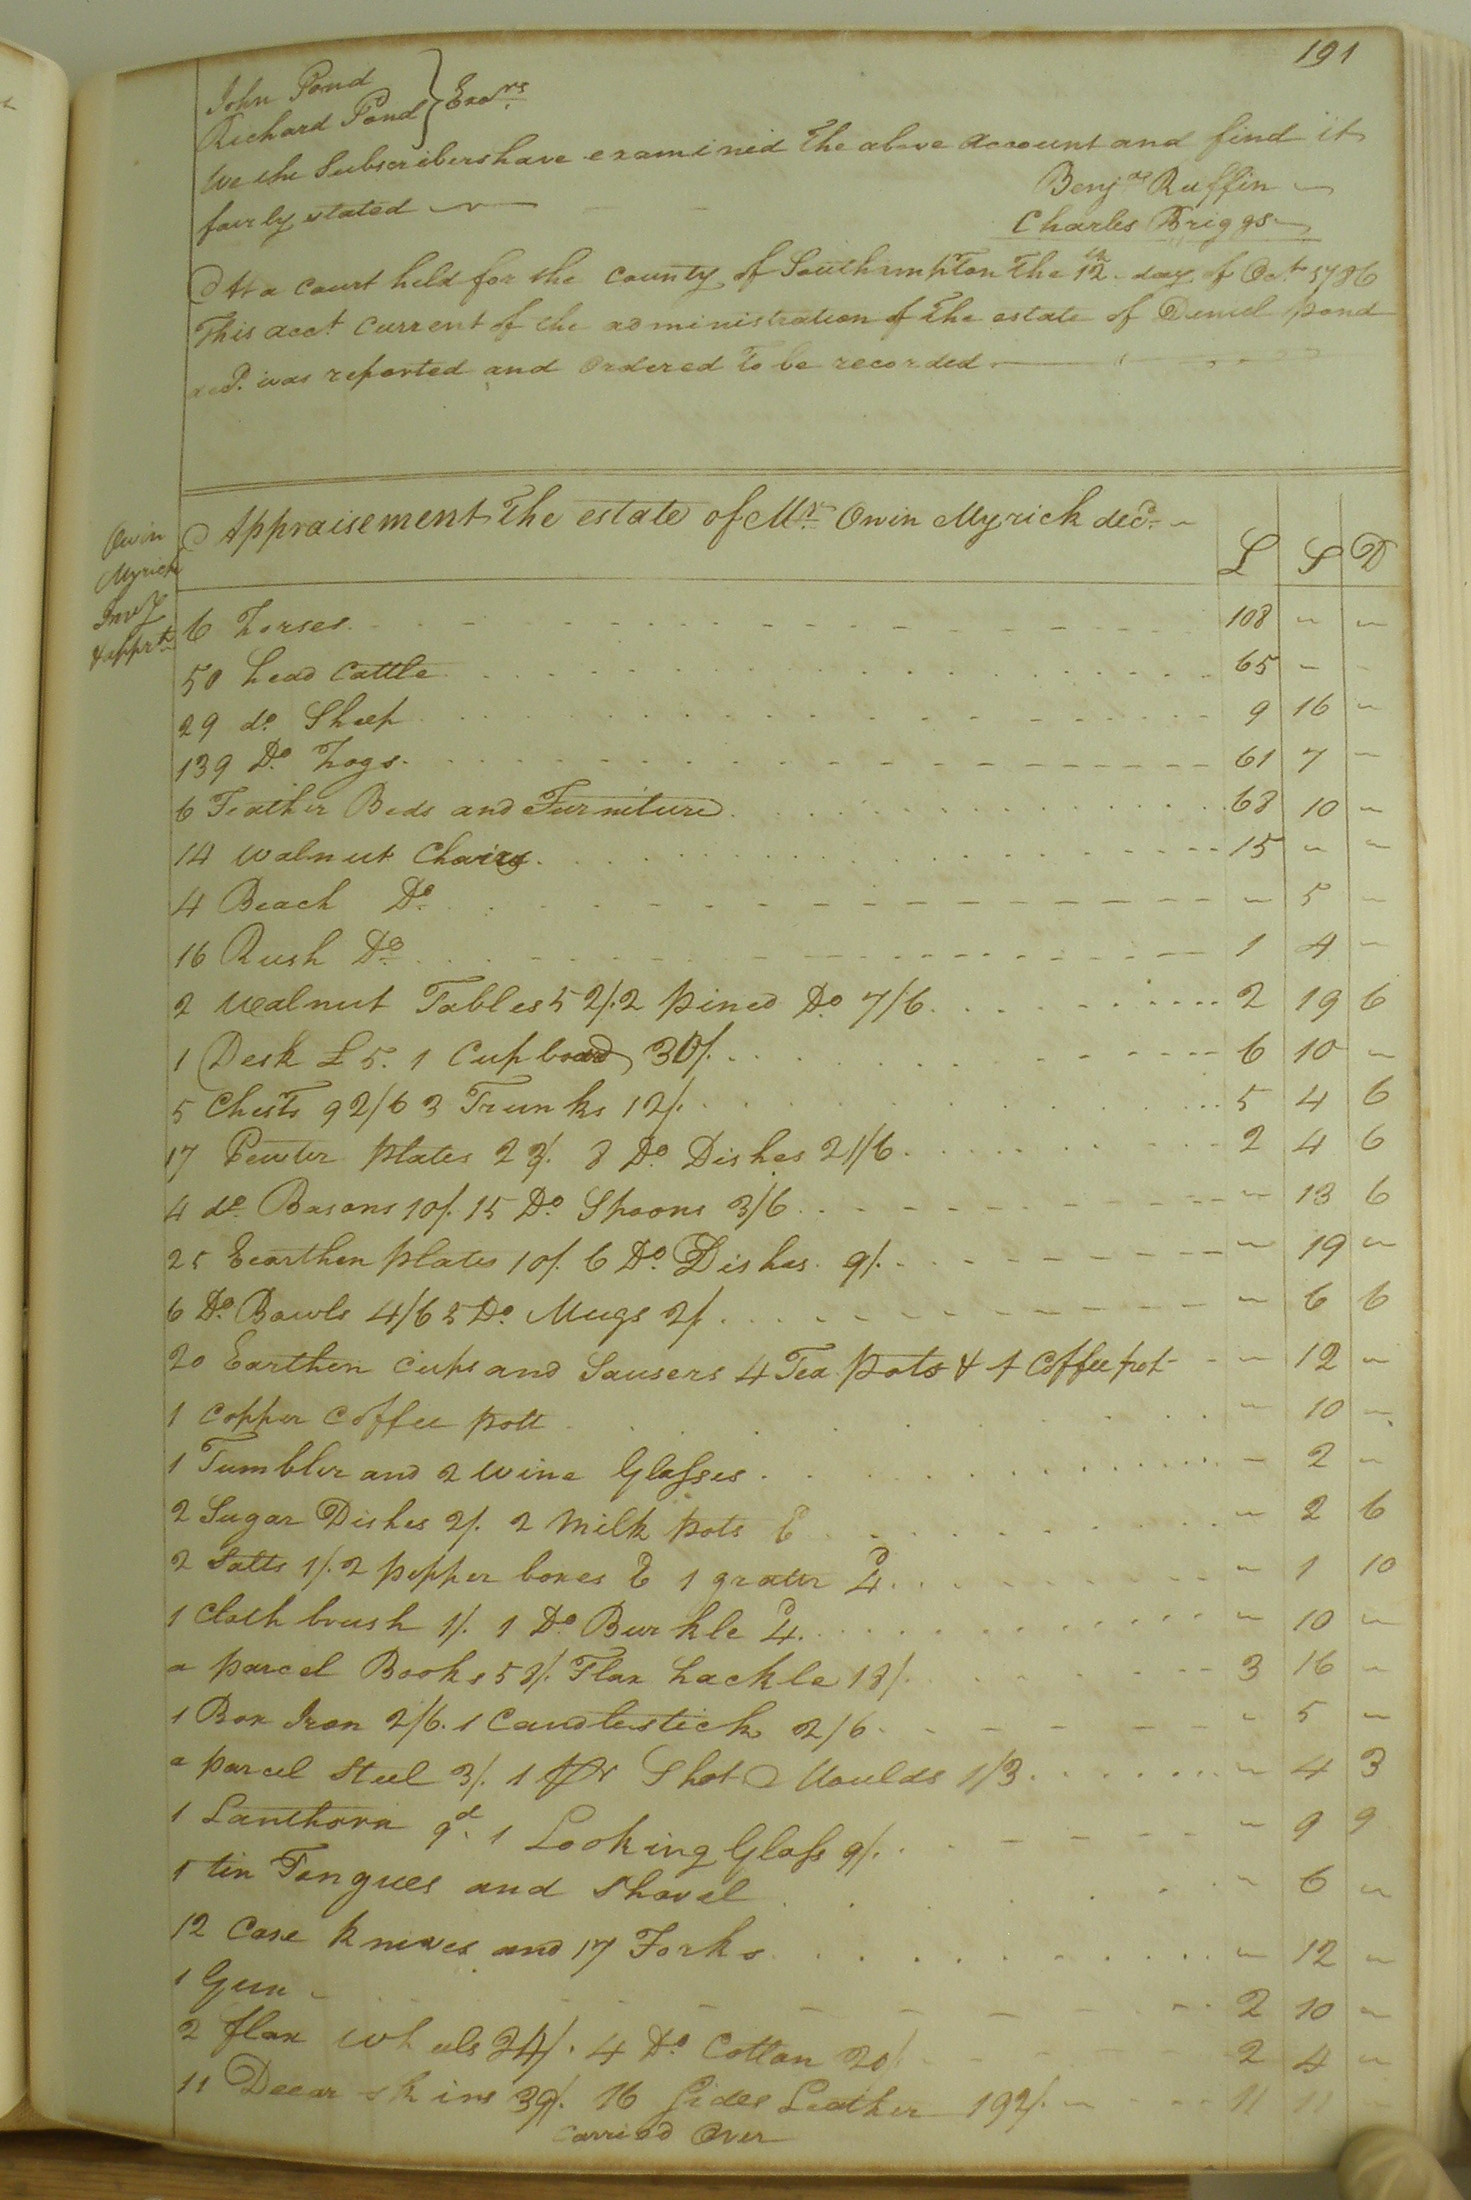 191
John Pond
Richard Pond } Exors
We the Subscribers have examined the above account and find it
fairly stated
Benja Ruffin
Charles Briggs
At a Court held for the County of Southampton the 12th day of Oct 1786
This acct Current of the administration of the estate of Daniel pond
decd. was reported and Ordered to be recorded
Owin
Myrick
Invy
& apprt
Appraisement The estate of Mr. Owin Myrick decd.
L S D
6 horses 108 - -
50 head Cattle 65 - -
29 do. Sheep 9 16 -
139 Do. hogs 61 7 -
6 Feather Beds and Furniture 68 10 -
14 walnut Chairs 15 - -
4 Beach Do - 5 -
16 Rush Do 1 4 -
2 Walnut Tables 52/. 2 pined Do 7/6 2 19 6
1 Desk £5. 1 Cupboard 30/. 6 10 -
5 Chests 92/6 3 Trunks 12/. 5 4 6
17 Pewter plates 23/. 8 Do. Dishes 21/6 2 4 6
4 do. Basons 10/. 15 Do Spoons 3/6 - 13 6
25 Earthen plates 10/. 6 Do. Dishes 9/. - 19 -
6 Do. Bowls 4/6 5 Do. Mugs 2/. - 6 6
20 Earthen Cups and Sausers 4 Tea pots & 1 Coffee pot - 12 -
1 Copper Coffee pott - 10 -
1 Tumbler and 2 wine Glasses - 2 -
2 Sugar Dishes 2/. 2 Milk pots 6 - 2 6
2 Salts 1/. 2 pepper boxes 6 1 grater 4d - 1 10
1 Cloth brush 1/. 1 Do Burkle 4d - 10 -
a parcel Books 58/. Flax hackle 18/. 3 16 -
1 Box Iron 2/6. 1 Candlestick 2/6 - 5 -
a parcel Steel 3/. 1 pr Shot Moulds 1/3 - 4 3
1 Lanthorn 9d. 1 Looking Glass 9/. - 9 9
1 tin Tongues and Shovel - 6 -
12 Case knives and 17 Forks - 12 -
1 Gun 2 10 -
2 flax wheels 24/. 4 Do Cotton 20/ 2 4 -
11 Deear skins 39/. 16 Sides Leather 192/. 11 11 -
Carried Over